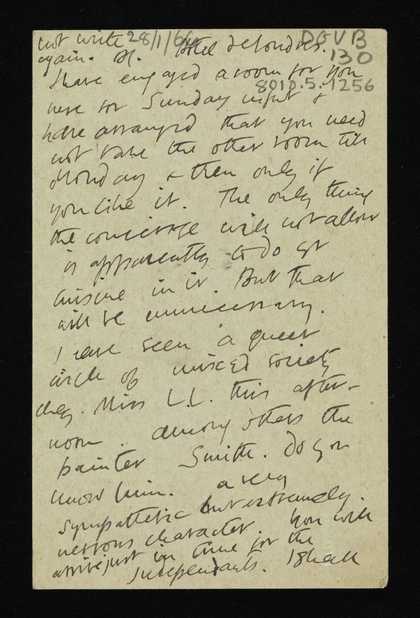 not write 28/1/60
again. Hotel de Londres. DGVB
130
8010.5.1256
I have engaged a room for you
here for Sunday night &
have arranged that you need
not take the other room till
Monday & then only if
you like it. The only thing
the concierge will not allow
is apparently to do
cuisine in it. But that
will be unnecessary.
I have seen a queer
circle of mixed society
chez. Miss L.L. this after-
noon. Among others the
painter Smith. Do you
know him. a very
sympathetic but extremely
nervous character. You will
arrive just in time for the
Independants. I shall